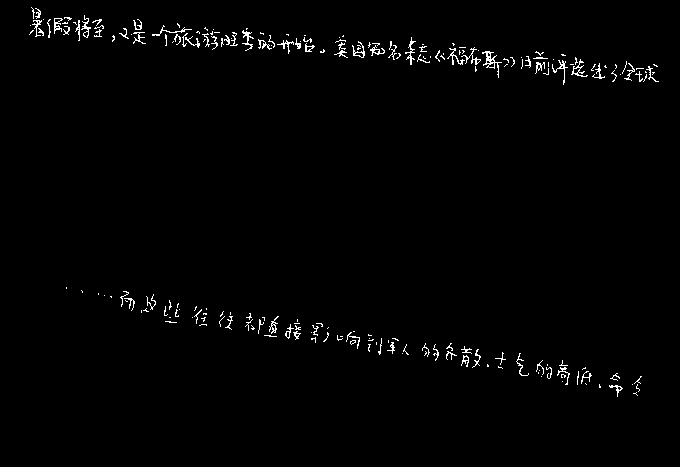 暑假将至，又是一个旅游旺季的开始。美国知名杂志《福布斯》日前评选出了全球
……而这些往往都直接影响到军人的参散、士气的高低、命令